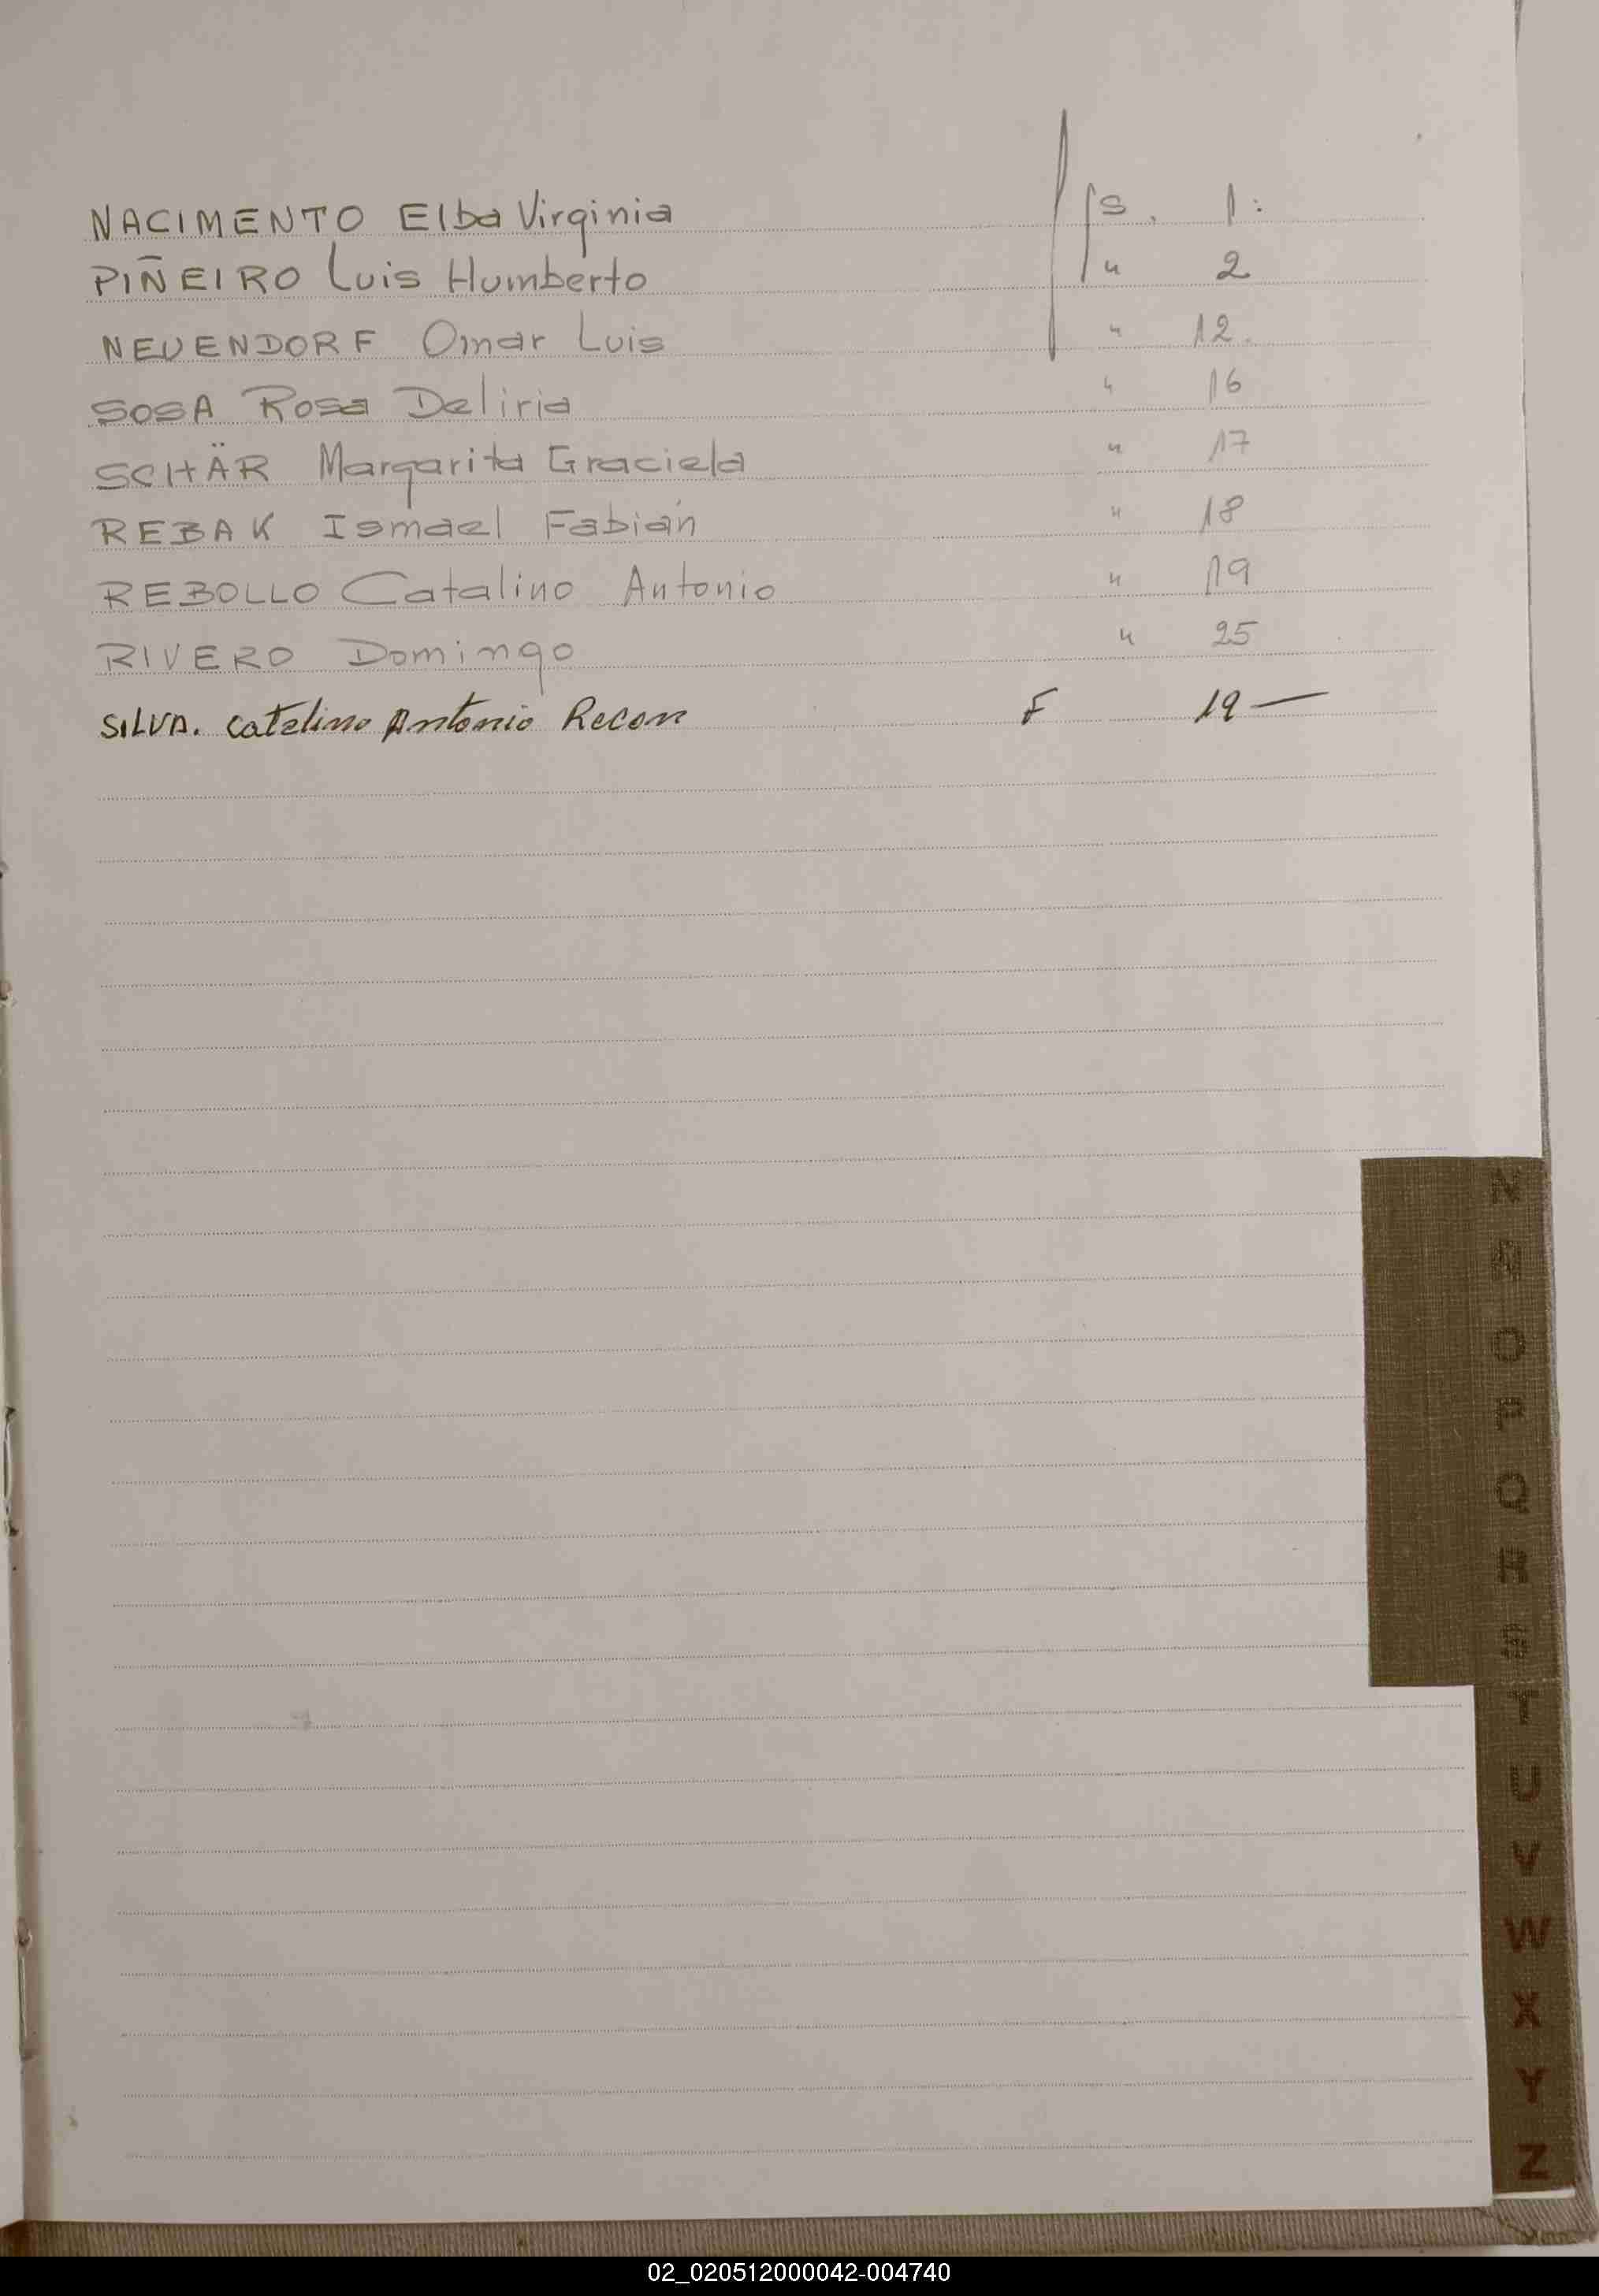 NACIMENTO Elba Virginia fs. 1:
PIÑEIRO Luis Humberto " 2
NEUENDORF Omar Luis " 12.
SOSA Rosa Deliria " 16
SCHÄR Margarita Graciela " 17
REBAK Ismael Fabián " 18
REBOLLO Catalino Antonio " 19
RIVERO Domingo " 25
SILVA. Catalino Antonio Recon F 19 —
N
Ñ
O
P
Q
R
S
T
U
V
W
X
Y
Z
02_020512000042-004740